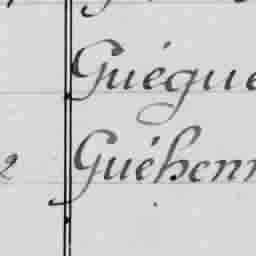 Guégue
2 Guéhenn